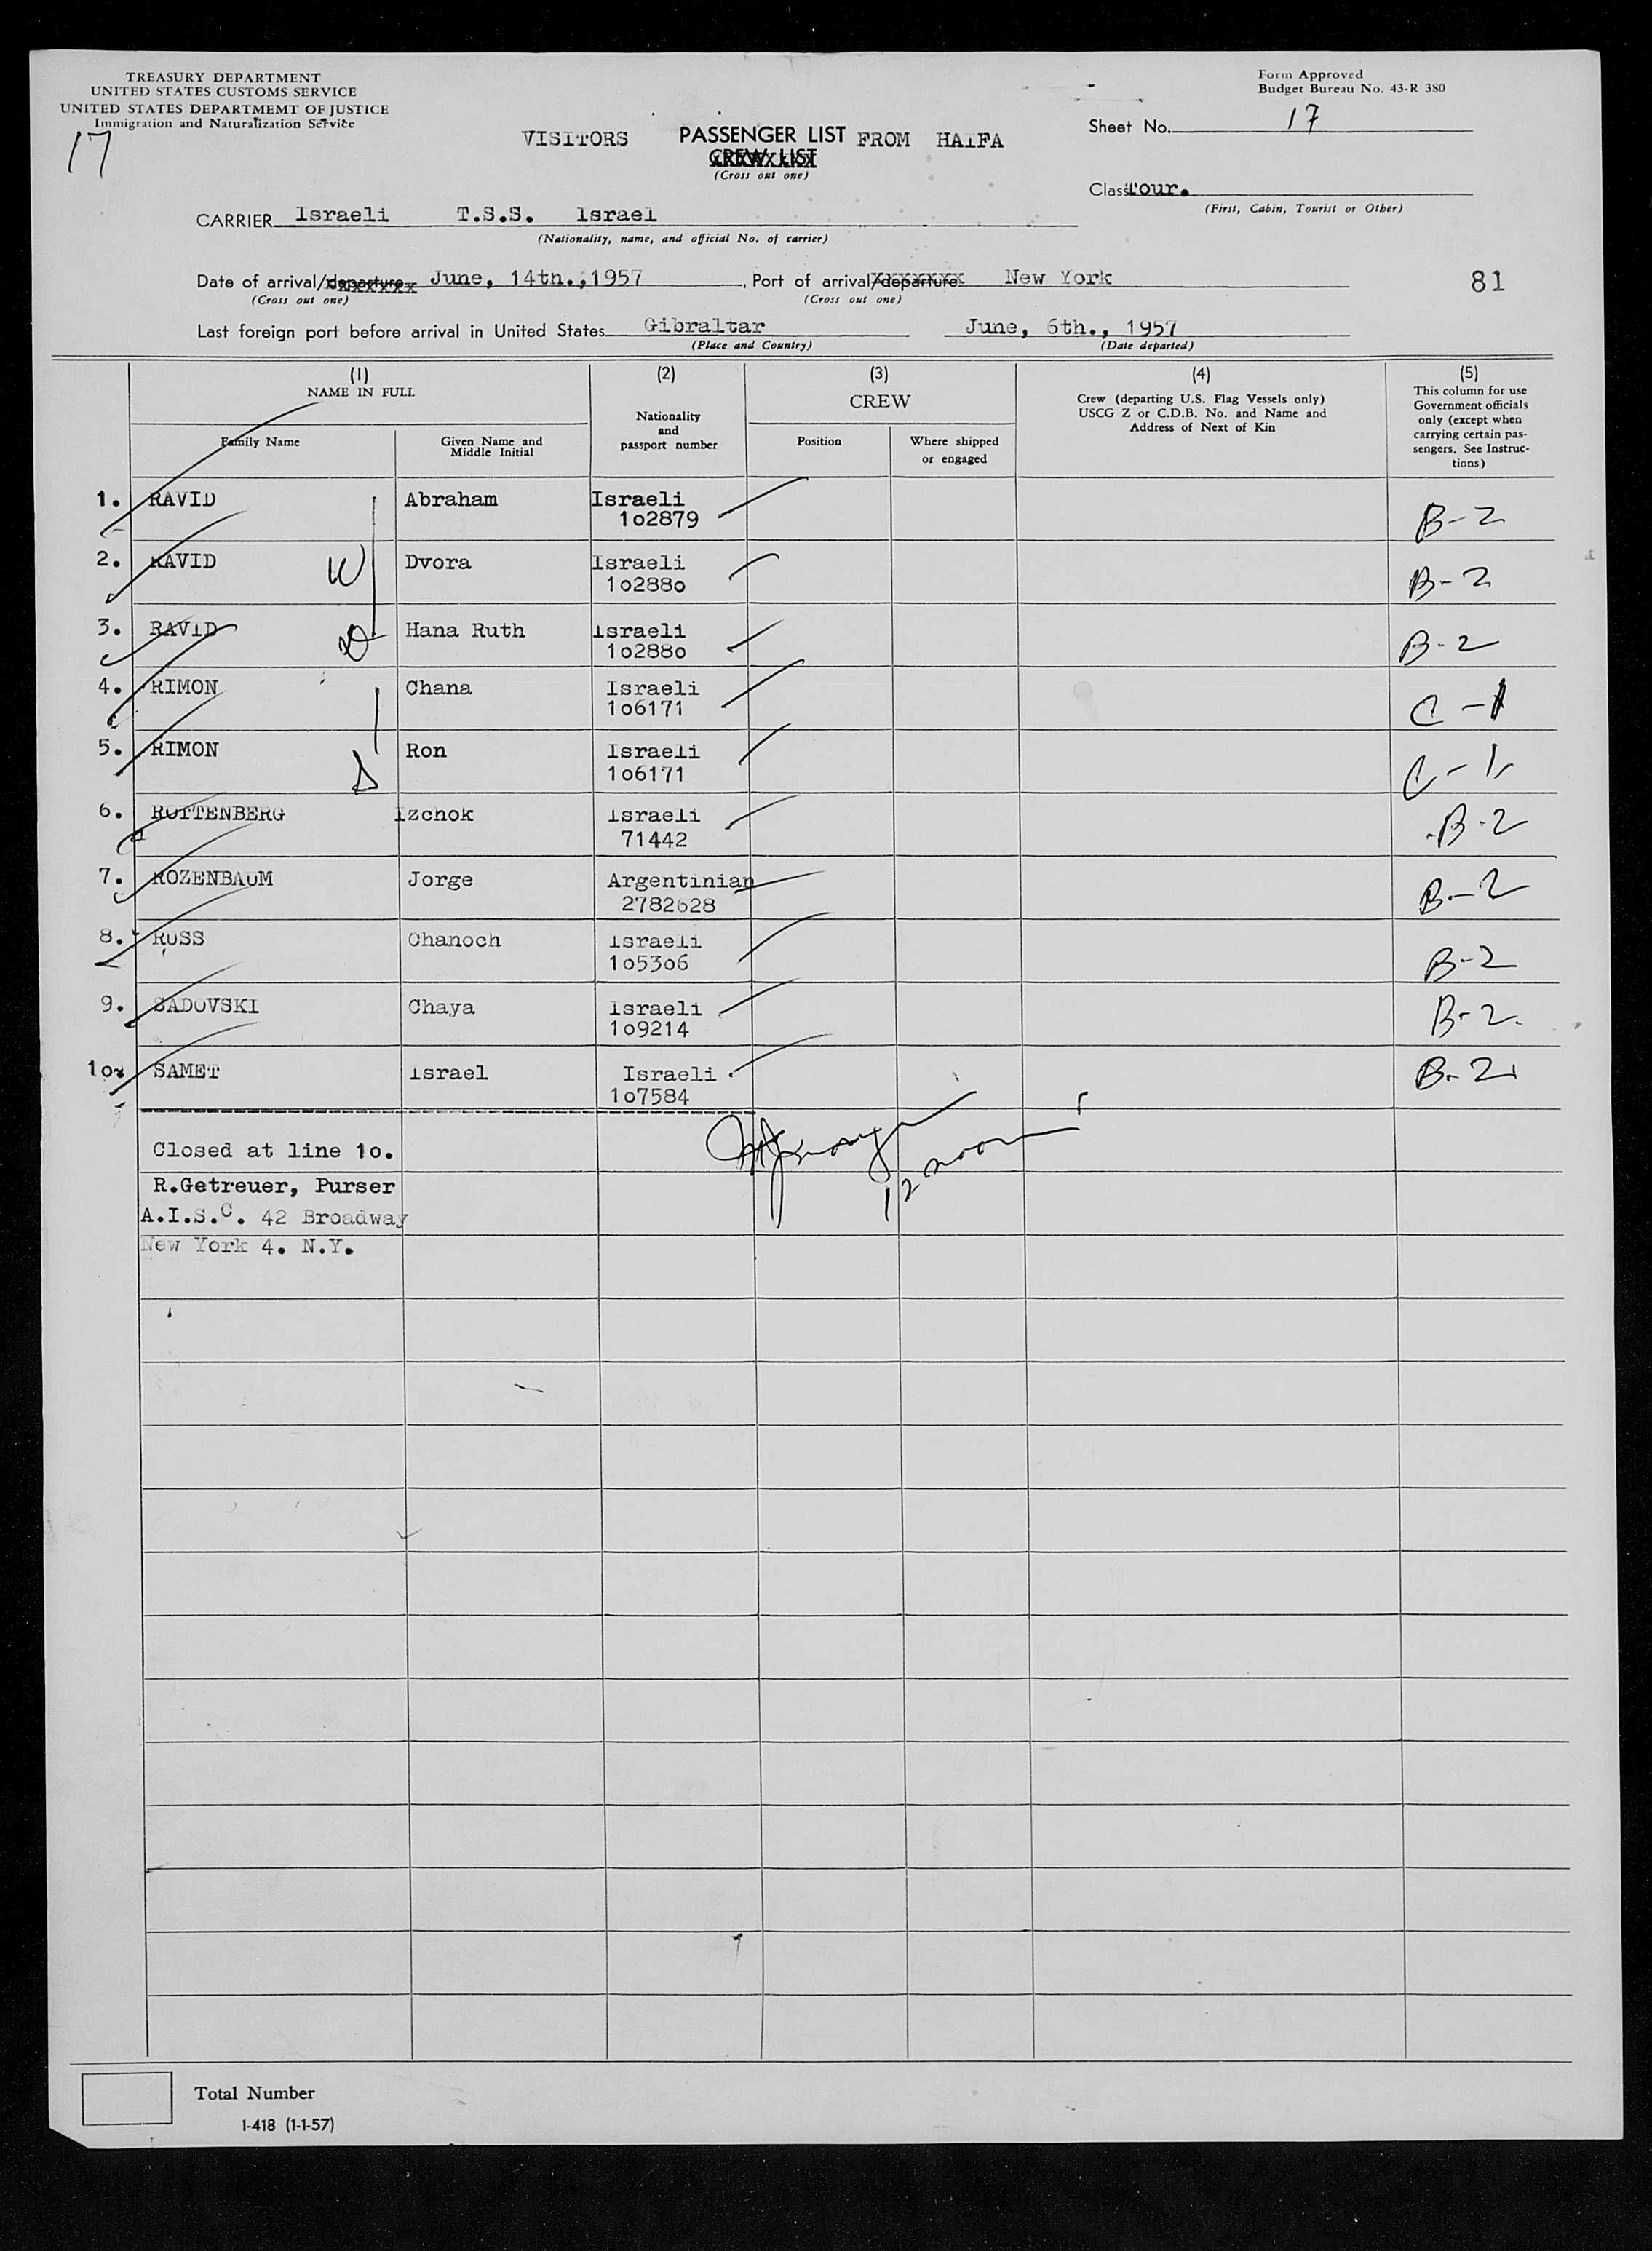 TREASURY DEPARTMENT
UNITED STATES CUSTOMS SERVICE
UNITED STATES DEPARTMEMT OF JUSTICE
Immigration and Naturalization Service
17
Form Approved
Budget Bureau No. 43-R 380
VISITORS PASSENGER LIST FROM HAIFA
CREW LIST
(Cross out one)
Sheet No. 17
Class Tour.
(First, Cabin, Tourist or Other)
CARRIER Israeli T.S.S. Israel
(Nationality, name, and official No. of carrier)
Date of arrival/departure June, 14th.,1957, Port of arrival/departure New York
(Cross out one) (Cross out one)
81
Last foreign port before arrival in United States Gibraltar June, 6th., 1957
(Place and Country) (Date departed)
(1) (2) (3) (4) (5)
NAME IN FULL
Family Name
Given Name and
Middle Initial
Nationality
and
passport number
CREW
Position
Where shipped
or engaged
Crew (departing U.S. Flag Vessels only)
USCG Z or C.D.B. No. and Name and
Address of Next of Kin
This column for use
Government officials
only (except when
carrying certain pas-
sengers. See Instruc-
tions)
1. RAVID Abraham Israeli
1o2879 B-2
2. RAVID W Dvora Israeli
1o288o B-2
3. RAVID D Hana Ruth Israeli
1o288o B-2
4. RIMON Chana Israeli
1o6171 C-1
5. RIMON S Ron Israeli
1o6171 C-1
6. ROTTENBERG Izchok Israeli
71442 B-2
7. ROZENBAUM Jorge Argentinian
2782628 B-2
8. RUSS Chanoch Israeli
1o53o6 B-2
9. SADOVSKI Chaya Israeli
1o9214 B-2
1o. SAMET Israel Israeli
1o7584 B-2
Closed at line 1o.
12 noon
R.Getreuer, Purser
A.I.S.C. 42 Broadway
New York 4. N.Y.
Total Number
I-418 (1-1-57)